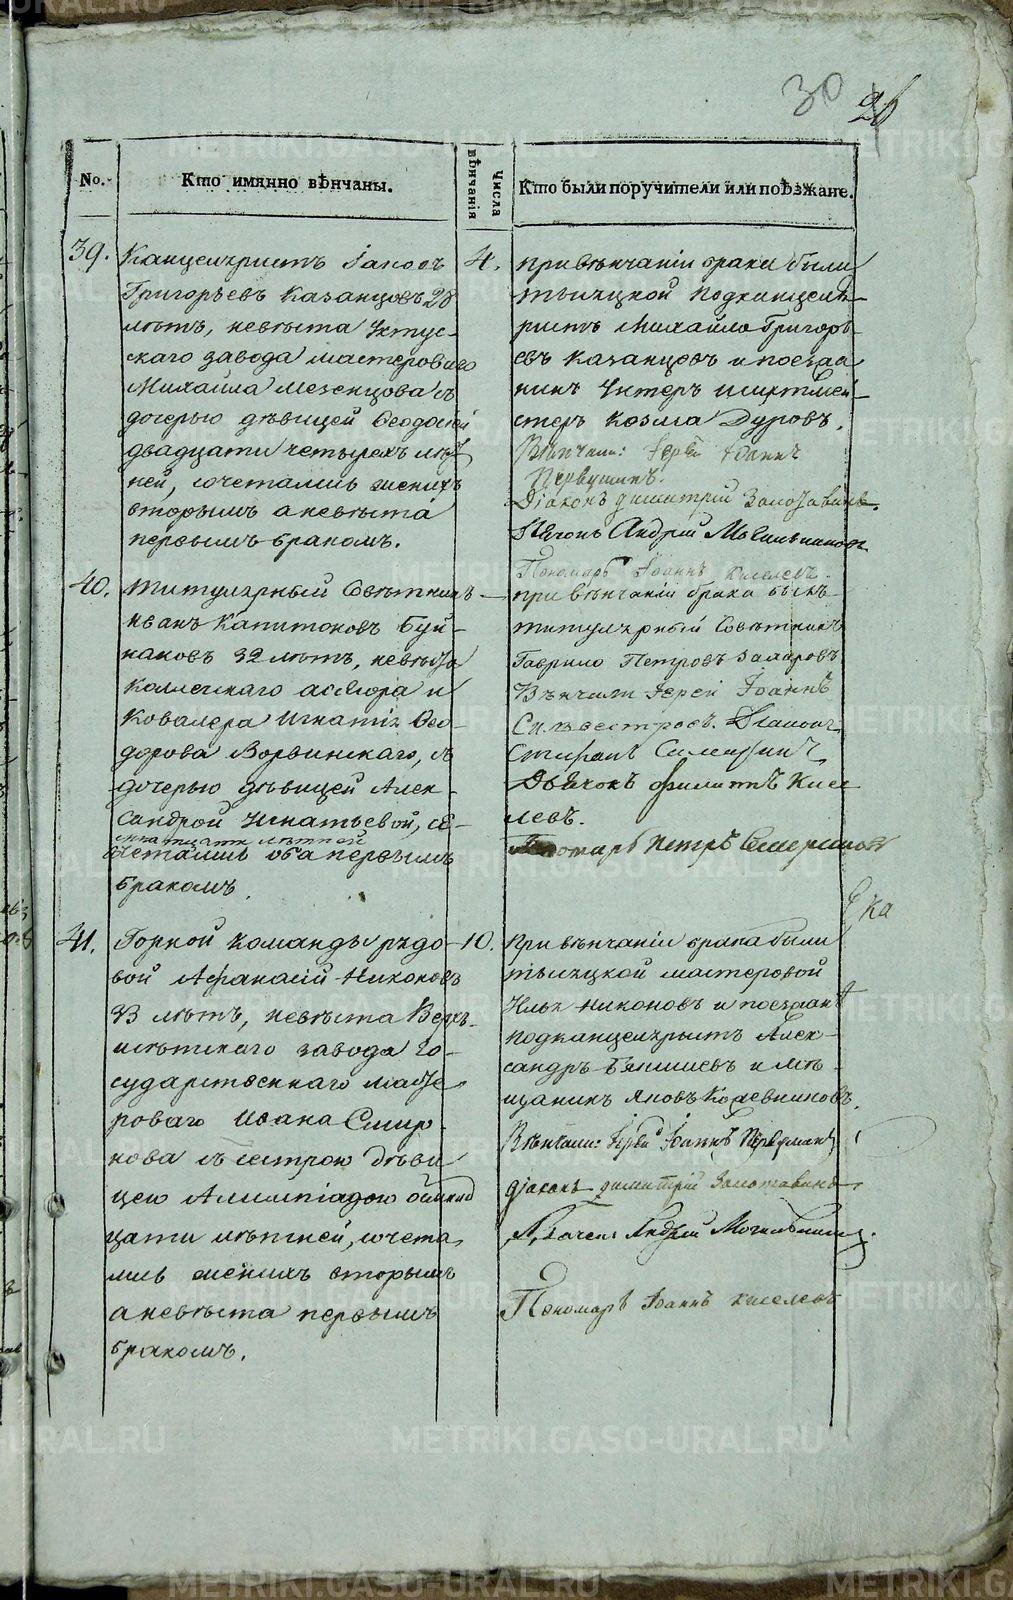 30 26
No.
Кто имянно вѣнчаны.
Числа вѣнчанія
Кто были поручители или поѣзжане.
39.
Канцеляристъ Іаковъ
Григорьевъ Казанцовъ 28
лѣтъ, невѣста Уктус-
скаго завода мастероваго
Михаила Мезенцова съ
дочерью дѣвицей Ѳеодосіей
двадцати четырехъ лѣт
ней, сочетались женихъ
вторымъ а невѣста
первымъ бракомъ.
4.
при вѣнчаніи брака были
тысяцкой подканцеля-
ристъ Михайло Григорь-
евъ Казанцовъ и поезжа
нинъ Унтеръ шихтмей-
стеръ Козма Дуровъ.
Вѣнчали: Іерей Іоаннъ
Первушинъ.
Діаконъ Димитрій Золотавинъ.
Дьячокъ Андрей Могильников
Пономарь Іоаннъ Киселевъ
40.
Титулярный Совѣтникъ
Иванъ Капитоновъ Буй-
наковъ 32 лѣтъ, невѣста
Коллежскаго асессора и
Ковалера Игнатія Ѳео-
дорова Ворвинскаго, съ
дочерью дѣвицей Алек-
сандрой Игнатьевой, со-
лѣтней
четались оба первымъ
бракомъ.
при вѣнчаніи брака былъ
титулярный Совѣтникъ
Гаврило Петровъ
Вѣнчали Іерей Іоаннъ
Сильвестровъ. Діаконъ
Стефанъ
Дьячокъ Филиппъ Кисе
левъ.
Пономарь Петръ
41.
Горной команды рядо
вой Афанасій Никоновъ
33 лѣтъ, невѣста Верхъ-
исѣтскаго завода Го-
сударственнаго масте
роваго Ивана Смир-
нова съ сестрою дѣви
цею Алимпіадою осмнад
цати лѣтней, сочета
лись женихъ вторымъ
а невѣста первымъ
бракомъ.
10.
При вѣнчаніи брака были
тысяцкой мастеровой
Илья Никоновъ и поезжане
подканцеляристъ Алек-
сандръ и мѣ-
щанинъ Яковъ Колевниковъ.
Вѣнчали: Іерей Іоаннъ Первушинъ
Діаконъ Димитрій Золотавинъ
Дьячекъ Андрей Могильников.
Пономарь Іоаннъ Киселевъ
METRIKI.GASO-URAL.RU